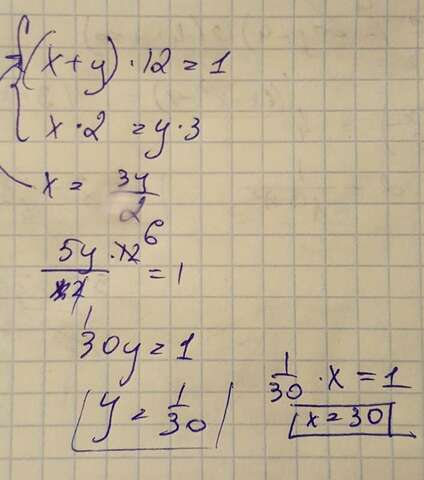 (x+y)·12=1
x·2=y·3
x = 3y/2
5y·12/2 = 1
6
1
30y=1
y = 1/30
1/30 · x = 1
x=30